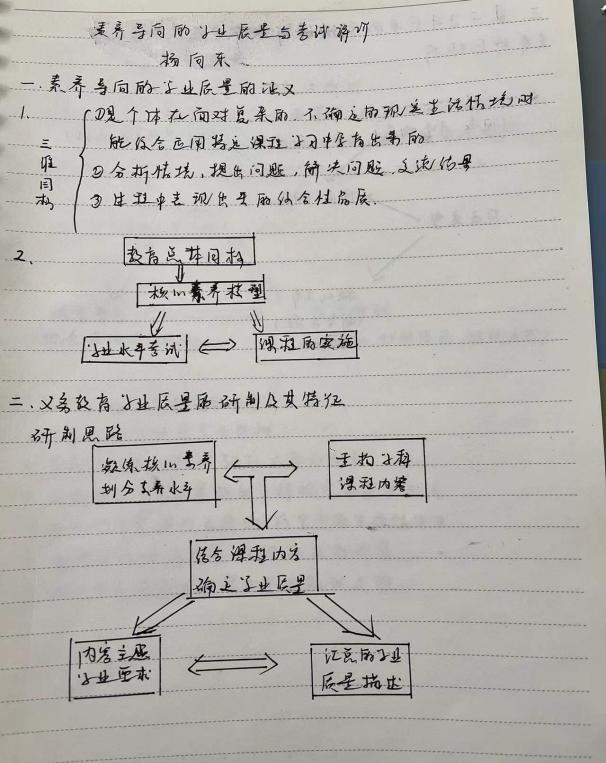 素养导向的学业质量与考试评价
杨向东
一.素养导向的学业质量的涵义
1.
三维
①是个体在面对复杂的、不确定的现实生活情境时
能综合应用特定课程学习中孕育出来的
②分析情境,提出问题,解决问题,交流结果
③过程中表现出来的综合性品质.
2.
教育总体目标
核心素养模型
学业水平考试
课程的实施
二.义务教育学业质量的研制及其特征
研制思路
核心素养
划分素养水平
学科
课程内容
结合课程内容
确定学业质量
内容主题
学业要求
汇总的学业
质量描述